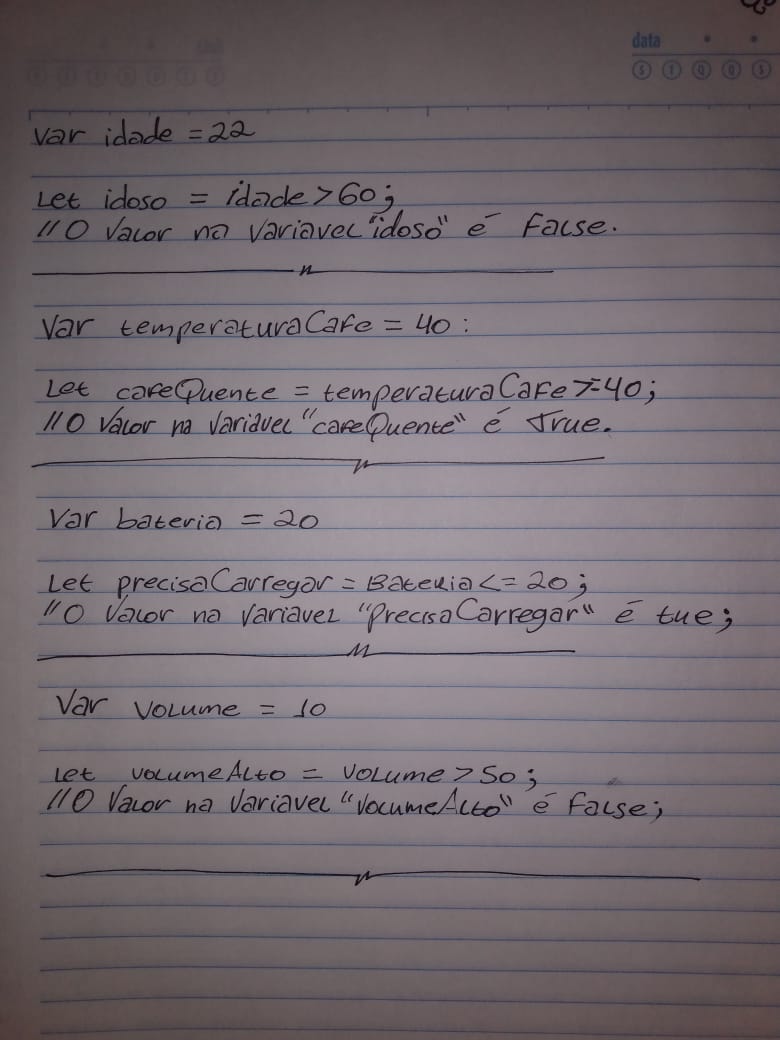 data
S T Q Q S
Var idade = 22
Let idoso = idade > 60;
// O Valor na Variavel "idoso" é False.
Var temperaturaCafe = 40:
Let cafeQuente = temperaturaCafe >= 40;
// O Valor na Variavel "cafeQuente" é True.
Var bateria = 20
Let precisaCarregar = Bateria <= 20;
// O Valor na Variavel "PrecisaCarregar" é tue;
Var Volume = 10
Let volumeAlto = Volume > 50;
// O Valor na Variavel "VolumeAlto" é False;